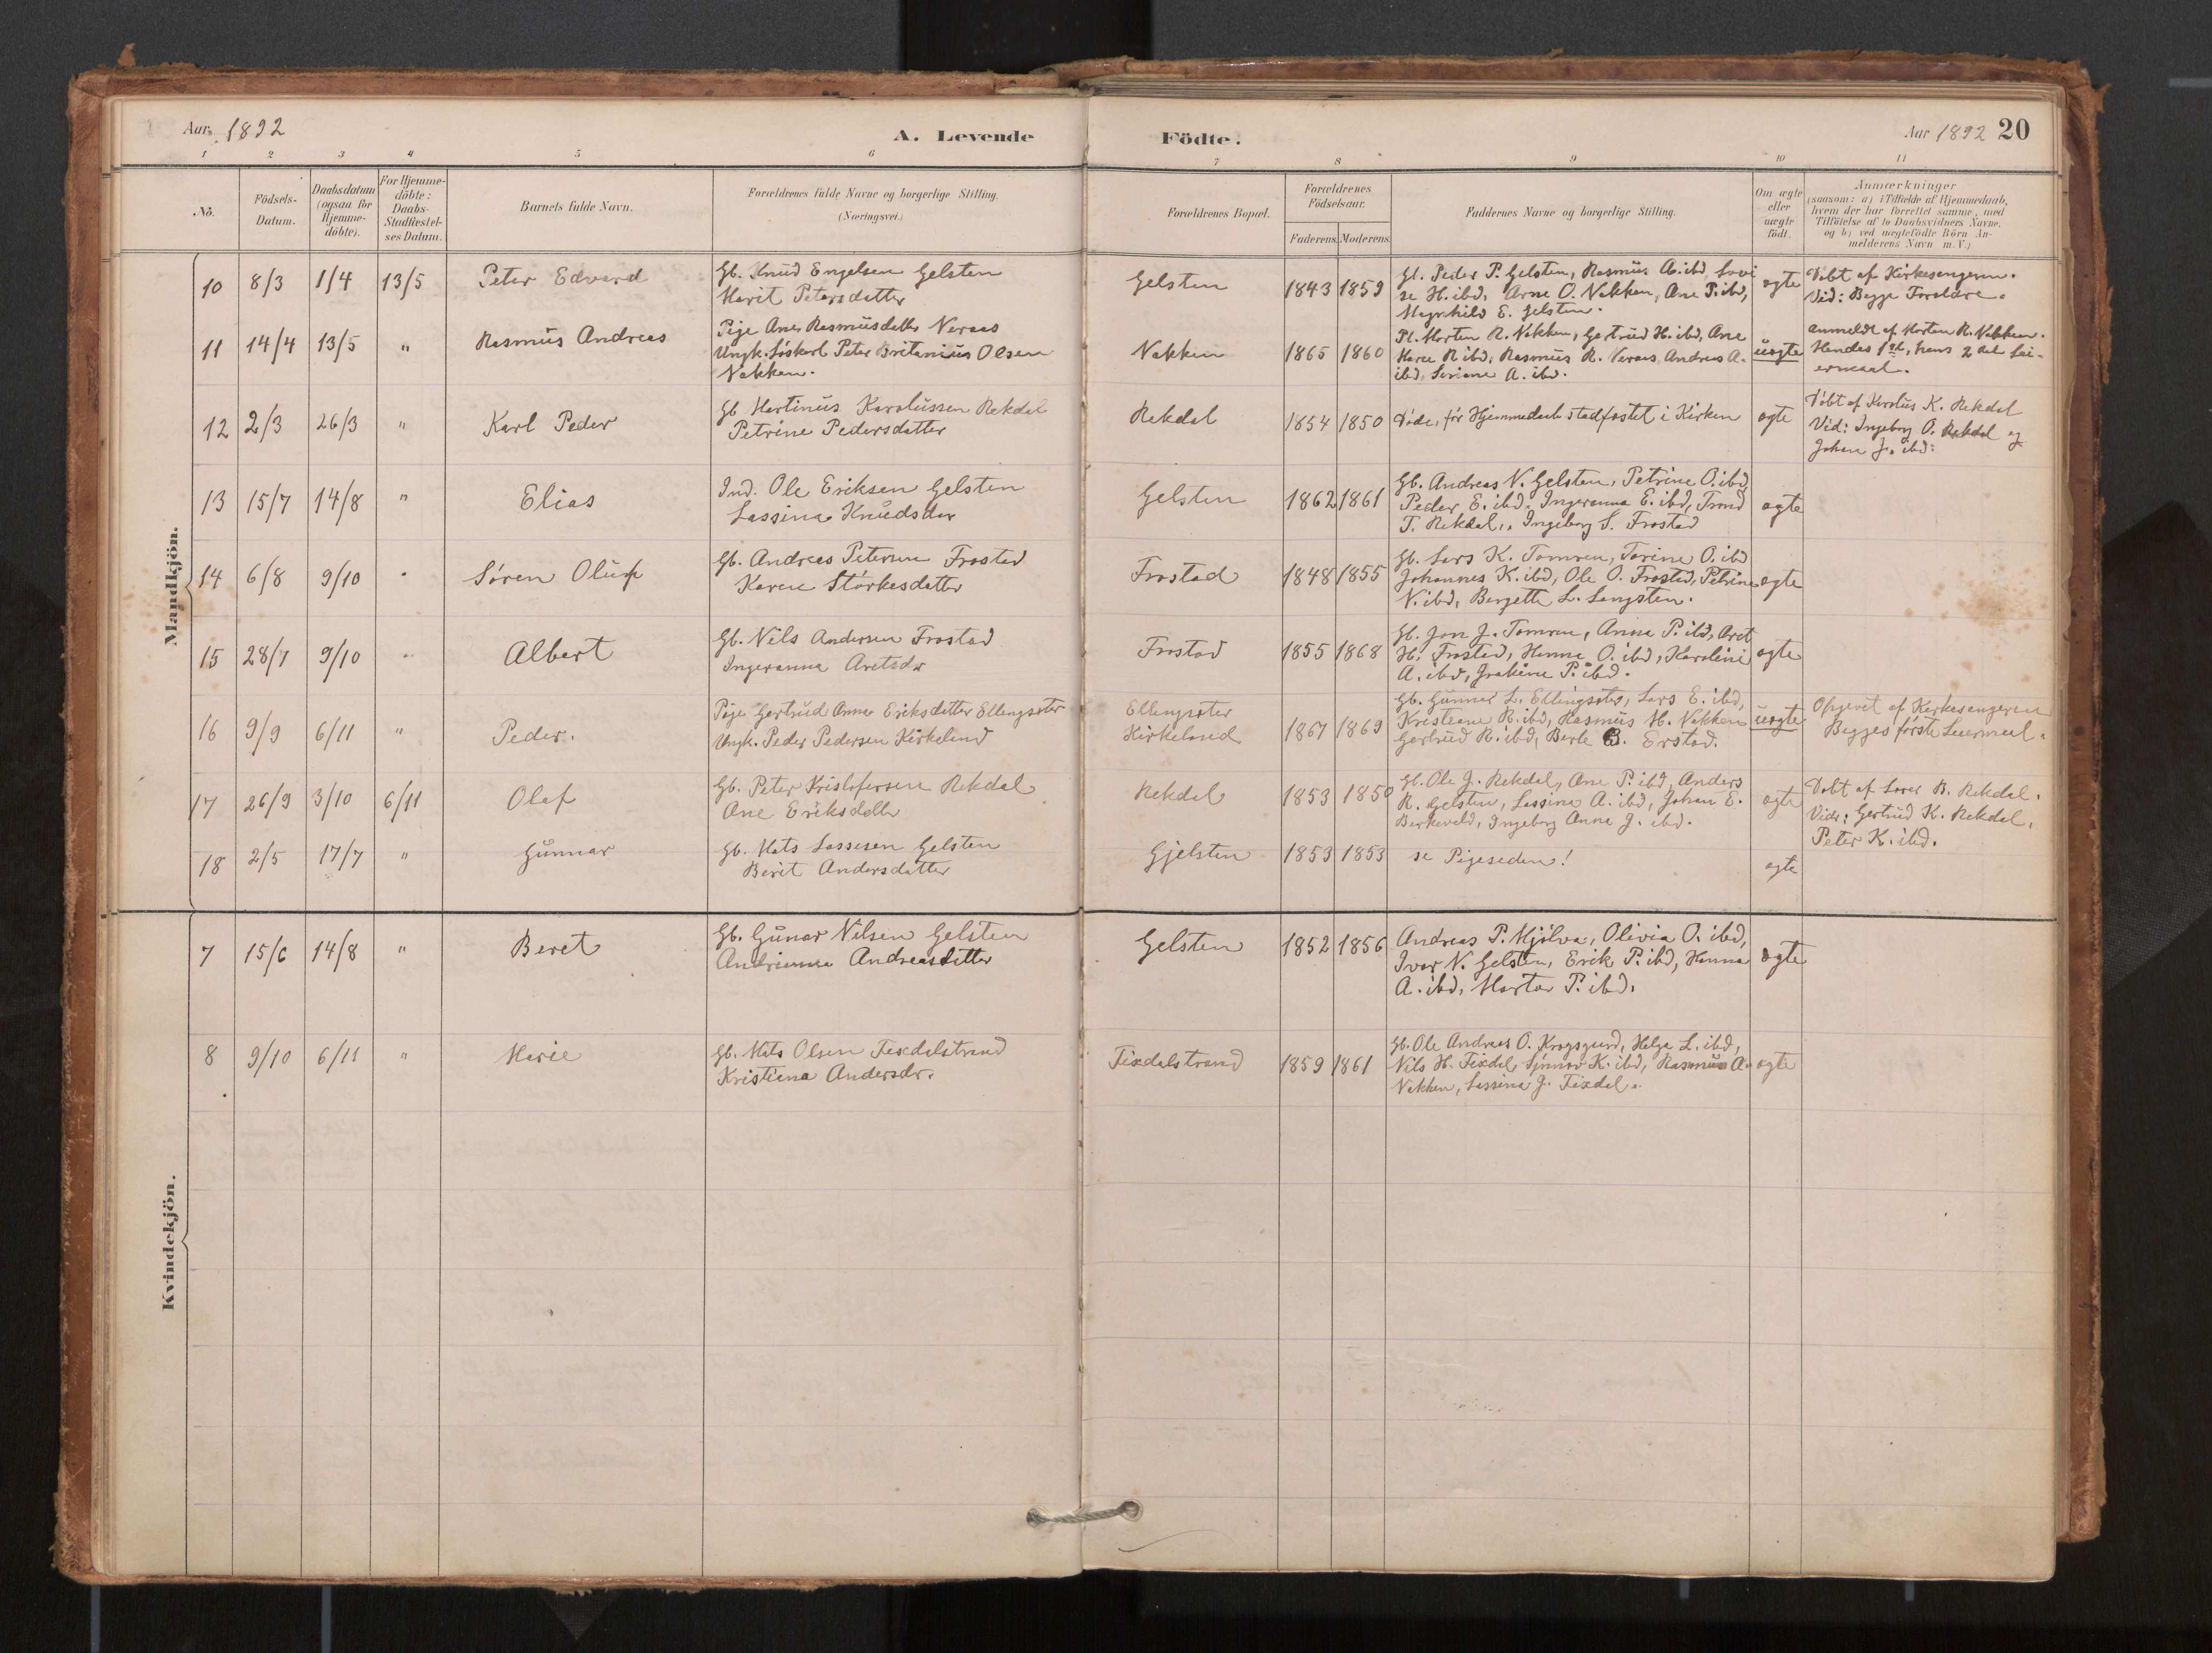 Aar 1892
A. Levende
Födte.
Aar 1892 20
1 2 3 4 5 6 7 8 9 10 11
No.
Födsels-Datum.
Daabsdatum (ogsaa for Hjemme-döbte).
For Hjemme-döbte: Daabs-Stadfæstel-ses Datum.
Barnets fulde Navn.
Forældrenes fulde Navne og borgerlige Stilling.
(Næringsvei.)
Forældrenes Bopæl.
Forældrenes Födselsaar.
Faderens. Moderens.
Faddernes Navne og borgerlige Stilling.
Om ægte eller uægte födt.
Anmærkninger
(saasom: a) i Tilfælde af Hjemmedaab, hvem der har forrettet samme, med Tilföielse af to Daabsvidners Navne, og b) ved uægtefödte Börn An-melderens Navn m. V.)
Mandkjön.
10 8/3 1/4 13/5 Peter Edvard
Gb. Knud Engelsen Gelsten
Marit Petersdatter
Gelsten 1843 1859
Gb. Peder P. Gelsten, Rasmus A. ibd, Lovi
se H. ibd, Arne O. Nakken, Ane P. ibd,
Magnhild E. Gelsten.
ægte
Döbt af Kirkesangeren.
Vid: Begge Forældre.
11 14/4 13/5 " Rasmus Andreas
Pige Ane Rasmusdatter Veraas
Ungk. Söskarl Peter Britanius Olsen
Nakken.
Nakken 1865 1860
Pl. Morten R. Nakken, Gertrud H. ibd, Ane
Karee R ibd, Rasmus R. Veraas, Andreas A.
ibd, Seriane A. ibd.
uægte
Anmeldt af Morten R. Nakken.
Hendes 1ste, hans 2det Lei-
ermaal.
12 2/3 26/3 " Karl Peder
Gb Martinus Karolussen Rekdal
Petrine Pedersdatter
Rekdal 1854 1850
Döde, för Hjemmedaab stadfæstet i Kirken
ægte
Döbt af Karolus K. Rekdal
Vid: Ingeborg O. Rekdal og
Johan J. ibd:
13 15/7 14/8 " Elias
Ind. Ole Eriksen Gelsten
Lassina Knudsdtr
Gelsten 1862 1861
Gb. Andreas N. Gelsten, Petrine O. ibd,
Peder E. ibd. Ingeranna E. ibd, Trond
T. Rekdal, Ingeborg S. Frostad
ægte
14 6/8 9/10 " Sören Oluf
Gb. Andreas Petersen Frostad
Karen Störkesdatter
Frostad 1848 1855
Gb. Lars K. Tomren, Torine O. ibd
Johannes K. ibd, Ole O. Frostad, Petrine
N. ibd, Bergette L. Langsten.
ægte
15 28/7 9/10 " Albert
Gb. Nils Andersen Frostad
Ingeranna Aretsdr
Frostad 1855 1868
Gb. Jon J. Tomren, Anna P. ibd, Aret
H. Frostad, Hanna O. ibd, Karoline
A. ibd, Joakine P. ibd.
ægte
16 9/9 6/11 " Peder.
Pige Gertrud Anna Eriksdatter Ellingsæter
Ungk. Peder Pedersen Kirkeland
Ellingsæter
Kirkeland
1867 1869
Gb. Gunnar L. Ellingsæter, Lars E. ibd,
Kristiane R. ibd, Rasmus M. Nakken
Gertrud R. ibd, Berte B. Erstad.
uægte
Opgivet af Kirkesangeren
Begges förste Leiermaal.
17 26/9 3/10 6/11 Olaf
Gb. Peter Kristofersen Rekdal
Ane Eriksdatter
Rekdal 1853 1850
Gb. Ole J. Rekdal, Ane P. ibd, Anders
R. Gelsten, Lassina A. ibd, Johan E.
Birkeveld, Ingeborg Anna J. ibd.
ægte
Döbt af Lovee B. Rekdal.
Vidr: Gertrud K. Rekdal,
Peter K. ibd.
18 2/5 17/7 " Gunnar
Gb. Mats Lassesen Gelsten
Berit Andersdatter
Gjelsten 1853 1853 se Pigesiden! ægte
Kvindekjön.
7 15/6 14/8 " Beret
Gb. Gunar Nilsen Gelsten
Andrianna Andreasdatter
Gelsten 1852 1856
Andreas P. Mjölva, Olivia O. ibd,
Ivar N. Gelsten, Erik P. ibd, Hanna
A. ibd, Marta P. ibd.
ægte
8 9/10 6/11 " Marie
Gb. Mats Olsen Fixdalstrand
Kristiana Andersdr.
Fixdalstrand 1859 1861
Gb. Ole Andreas O. Krogsgaard, Helga L. ibd,
Nils H. Fixdal, Synnöv K. ibd, Rasmus A.
Nakken, Lassina J. Fixdal.
ægte